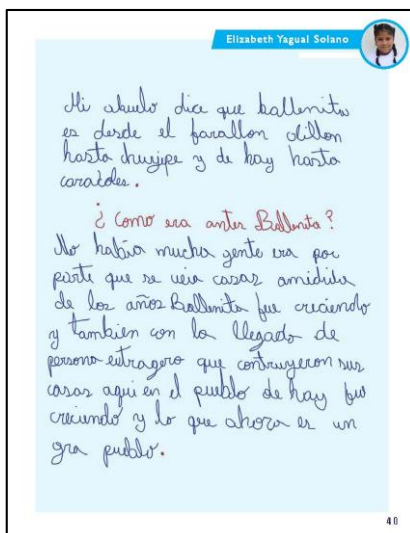 Elizabeth Yagual Solano
Mi abuelo dice que ballenita
es desde el farallon dillon
hasta chuyipe y de hay hasta
caracoles.
¿Como era antes Ballenita?
No había mucha gente era por
parte que se veia casas amidida
de los años Ballenita fue creciendo
y tambien con la llegada de
persona extragero que contruyeron sus
casas aqui en el pueblo de hay fue
creciendo y lo que ahora es un
gra pueblo.
40